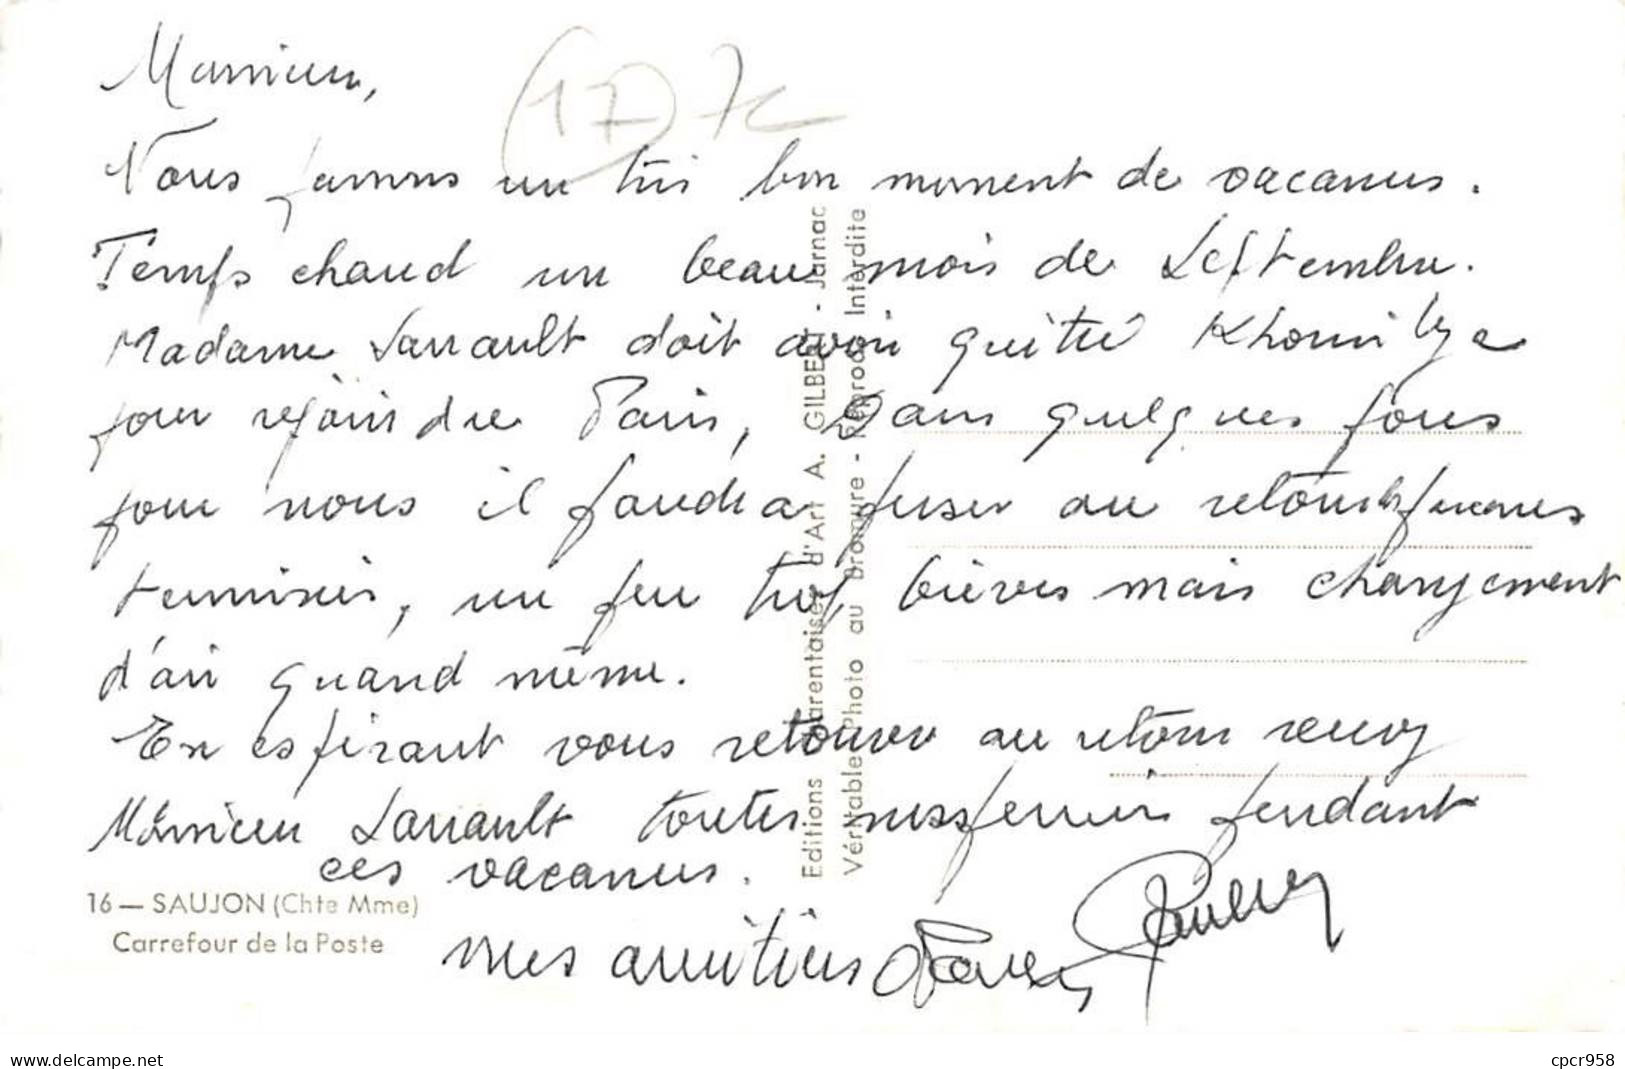 Monsieur,
(17)
Nous passons un très bon moment de vacances.
Temps chaud un beau mois de Septembre.
Madame Larrault doit avoir quitté
pour rejoindre Paris, Dans quelques jours
pour nous il faudra penser au retour
un peu trop brèves mais changement
d'air quand même.
En espérant vous retrouver au retour recevez
Monsieur Larrault toutes nos pendant
ces vacances.
mes amitiés
16 — SAUJON (Chte Mme)
Carrefour de la Poste
Editions Charentaises d'Art A. GILBERT - Jarnac
Véritable Photo au Bromure - Reprod. Interdite
www.delcampe.net
cpcr958